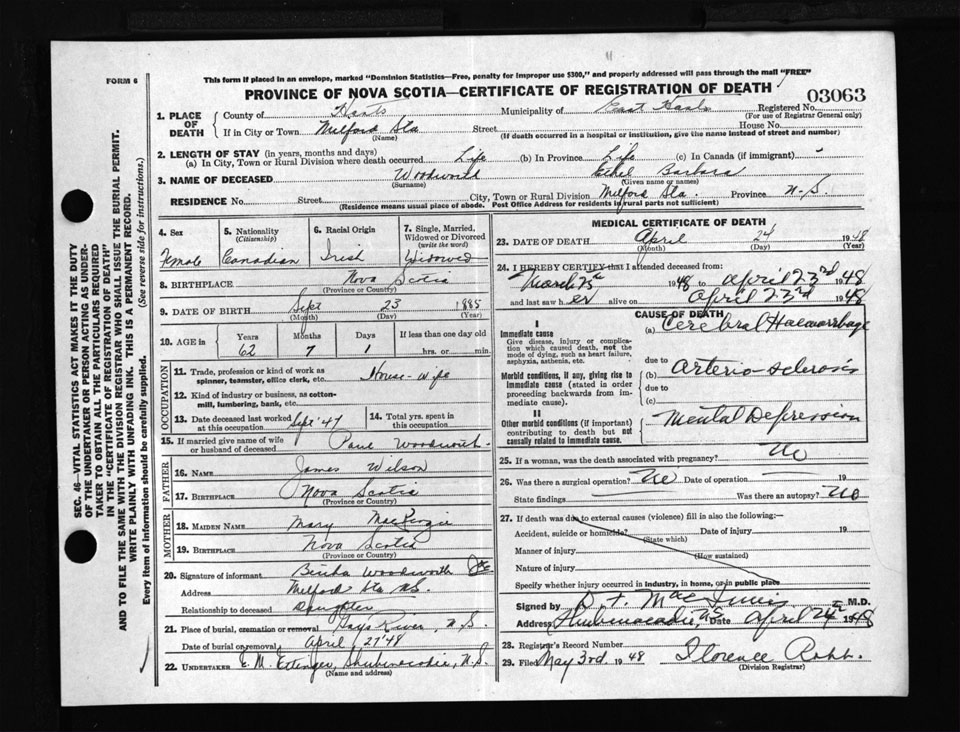 FORM 6
This form if placed in an envelope, marked "Dominion Statistics—Free, penalty for improper use $300," and properly addressed will pass through the mail "FREE"
PROVINCE OF NOVA SCOTIA—CERTIFICATE OF REGISTRATION OF DEATH
03063
1. PLACE OF DEATH
County of Hants Municipality of East Hants Registered No.
(For use of Registrar General only)
If in City or Town Milford Sta Street House No.
(Name) (If death occurred in a hospital or institution, give the name instead of street and number)
2. LENGTH OF STAY (in years, months and days)
(a) In City, Town or Rural Division where death occurred Life (b) In Province Life (c) In Canada (if immigrant)
3. NAME OF DECEASED Woodworth Ethel Barbara
(Surname) (Given name or names)
RESIDENCE No. Street City, Town or Rural Division Milford Sta. Province N.S.
(Residence means usual place of abode. Post Office Address for residents in rural parts not sufficient)
4. Sex
Female
5. Nationality
(Citizenship)
Canadian
6. Racial Origin
Irish
7. Single, Married, Widowed or Divorced
(write the word)
Widowed
8. BIRTHPLACE Nova Scotia
(Province or Country)
9. DATE OF BIRTH Sept 23 1885
(Month) (Day) (Year)
10. AGE in Years Months Days If less than one day old
62 7 1 hrs. or min.
OCCUPATION
11. Trade, profession or kind of work as spinner, teamster, office clerk, etc. House-wife
12. Kind of industry or business, as cotton-mill, lumbering, bank, etc.
13. Date deceased last worked at this occupation Sept '47
14. Total yrs. spent in this occupation
15. If married give name of wife or husband of deceased Woodworth
FATHER
16. NAME James Wilson
17. BIRTHPLACE Nova Scotia
(Province or Country)
MOTHER
18. MAIDEN NAME Mary MacKenzie
19. BIRTHPLACE Nova Scotia
(Province or Country)
20. Signature of informant Woodworth
Address Milford Sta N.S.
Relationship to deceased Daughter
21. Place of burial, cremation or removal Gays River, N.S.
Date of burial or removal April 27 '48
22. UNDERTAKER E. M. Ettinger, Shubenacadie, N.S.
(Name and address)
MEDICAL CERTIFICATE OF DEATH
23. DATE OF DEATH April 24 1948
(Month) (Day) (Year)
24. I HEREBY CERTIFY that I attended deceased from:
March 1948 to April 23rd 1948
and last saw her alive on April 23rd 1948
CAUSE OF DEATH
I
Immediate cause
Give disease, injury or complication which caused death, not the mode of dying, such as heart failure, asphyxia, asthenia, etc.
(a) Cerebral Haemorrhage
due to
Morbid conditions, if any, giving rise to immediate cause (stated in order proceeding backwards from immediate cause).
(b) Arterio-sclerosis
due to
(c)
II
Other morbid conditions (if important) contributing to death but not causally related to immediate cause.
Mental Depression
25. If a woman, was the death associated with pregnancy? No
26. Was there a surgical operation? No Date of operation 19
State findings Was there an autopsy? No
27. If death was due to external causes (violence) fill in also the following:—
Accident, suicide or homicide? Date of injury 19
(State which)
Manner of injury
(How sustained)
Nature of injury
Specify whether injury occurred in industry, in home, or in public place
Signed by MacInnis M.D.
Address Shubenacadie, NS Date April 24th 1948
28. Registrar's Record Number
29. Filed May 3rd 1948 Florence Robb.
(Division Registrar)
SEC. 46—VITAL STATISTICS ACT MAKES IT THE DUTY
OF THE UNDERTAKER OR PERSON ACTING AS UNDER-
TAKER TO OBTAIN ALL THE PARTICULARS REQUIRED
IN THE "CERTIFICATE OF REGISTRATION OF DEATH"
AND TO FILE THE SAME WITH THE DIVISION REGISTRAR WHO SHALL ISSUE THE BURIAL PERMIT.
WRITE PLAINLY WITH UNFADING INK. THIS IS A PERMANENT RECORD.
Every item of information should be carefully supplied. (See reverse side for instructions.)